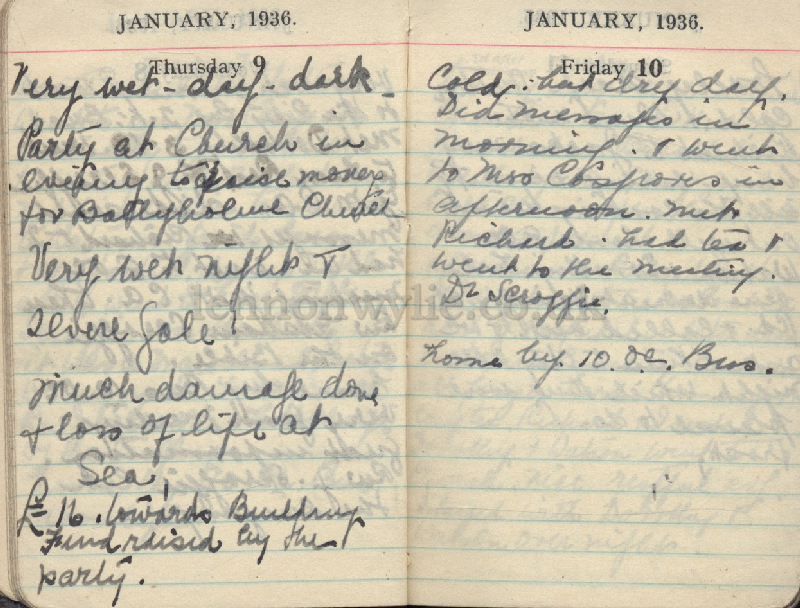 JANUARY, 1936.
Thursday 9
Very wet - day - dark -
Party at Church in
evening to raise money
for Ballyholme Church
Very wet night &
severe gale!
much damage done
& loss of life at
Sea,
£16. towards Building
Fund raised by the
party.
JANUARY, 1936.
Friday 10
Cold. but dry day.
Did messages in
morning. & went
to Mrs in
afternoon. met
Richard. had tea &
went to the meeting.
Dr Scroggie.
home by 10. oc. Bus.
lennonwylie.co.uk